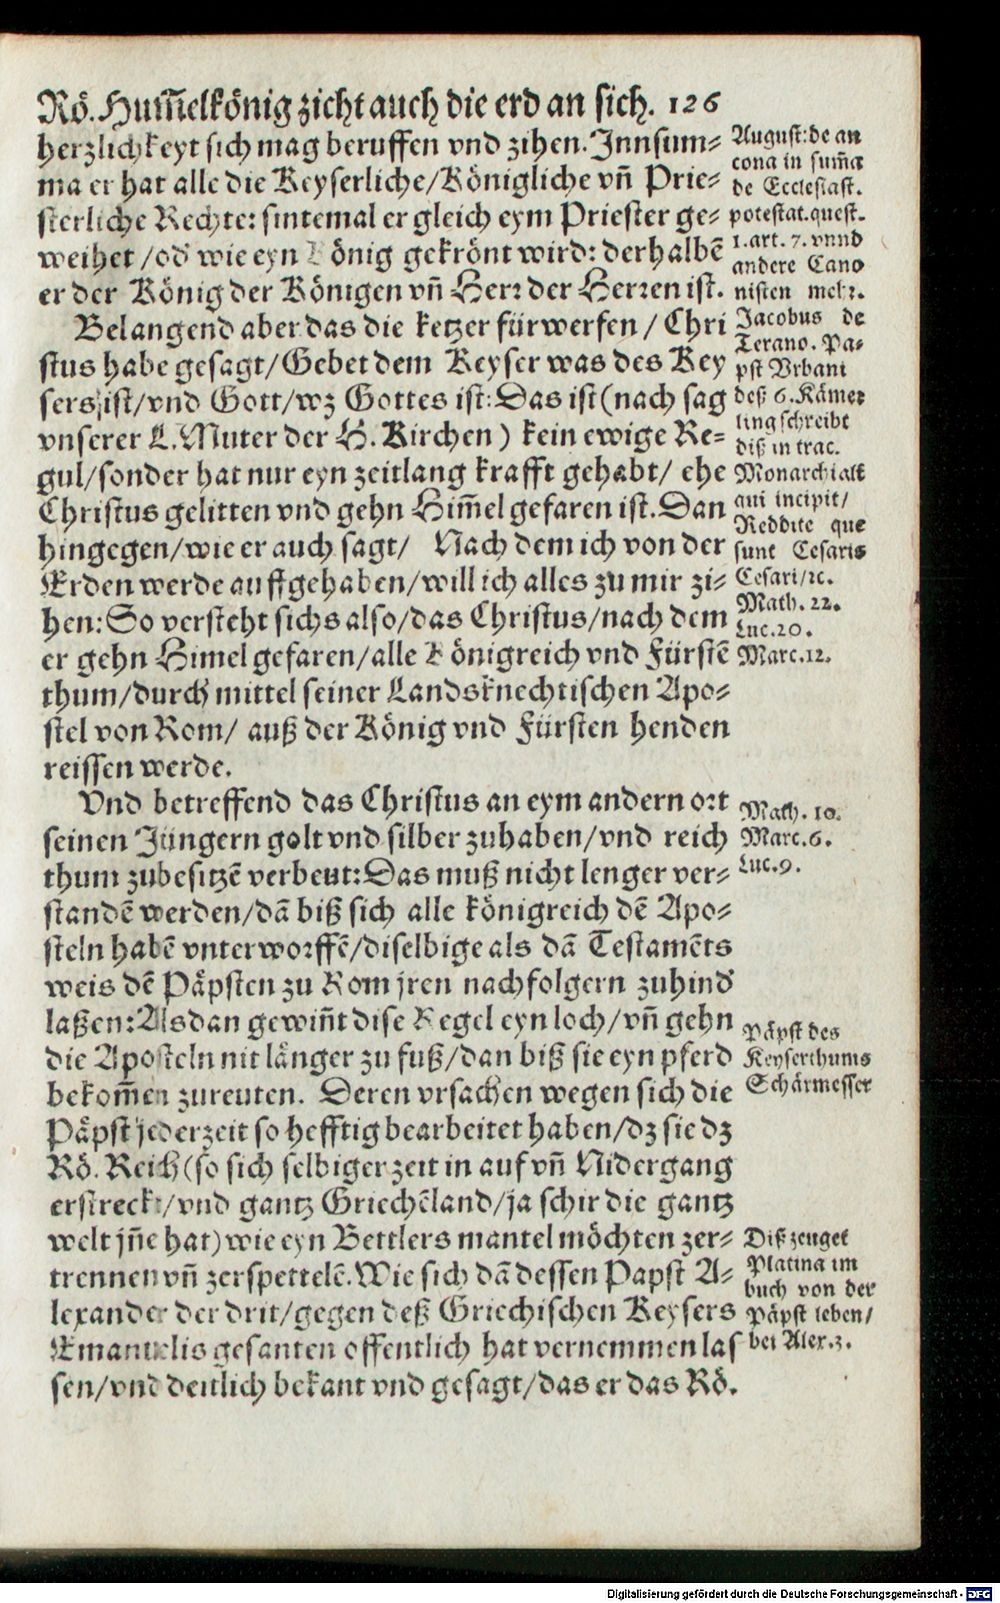 Rö. Hum̃elkönig zicht auch die erd an sich. 126
herzlichkeyt sich mag beruffen vnd zihen. Innsum⸗
ma er hat alle die Keyserliche/Königliche vñ Prie⸗
sterliche Rechte: sintemal er gleich eym Priester ge⸗
weihet /od' wie eyn König gekrönt wird: derhalbē
er der König der Königen vñ Herr der Herren ist.
Belangend aber das die ketzer fürwerfen / Chri
stus habe gesagt/Gebet dem Keyser was des Key
sers ist/vnd Gott/wz Gottes ist: Das ist (nach sag
vnserer L. Muter der H. Kirchen) kein ewige Re⸗
gul/sonder hat nur eyn zeitlang krafft gehabt/ ehe
Christus gelitten vnd gehn Him̃el gefaren ist. Dan
hingegen/wie er auch sagt/ Nach dem ich von der
Erden werde auffgehaben/will ich alles zu mir zi⸗
hen: So versteht sichs also/das Christus/nach dem
er gehn Himel gefaren/alle Königreich vnd Fürstē
thum/durch mittel seiner Landsknechtischen Apo⸗
stel von Rom/ auß der König vnd Fürsten henden
reissen werde.
Vnd betreffend das Christus an eym andern ort
seinen Jüngern golt vnd silber zuhaben/vnd reich
thum zubesitzē verbeut: Das muß nicht lenger ver⸗
standē werden/dā biß sich alle königreich dē Apo⸗
steln habē vnterworffē/diselbige als dā Testamēts
weis dē Päpsten zu Rom jren nachfolgern zuhind'
laßen: Alsdan gewiñt dise Regel eyn loch/vñ gehn
die Aposteln nit länger zu fuß/dan biß sie eyn pferd
bekom̃en zureuten. Deren vrsachen wegen sich die
Päpst jederzeit so hefftig bearbeitet haben/dz sie dz
Rö. Reich (so sich selbiger zeit in auf vñ Nidergang
erstreckt/vnd gantz Griechēland/ja schir die gantz
welt jñe hat) wie eyn Bettlers mantel möchten zer⸗
trennen vñ zerspettelē. Wie sich dā dessen Papst A⸗
lexander der drit/gegen deß Griechischen Keysers
Emanuelis gesanten offentlich hat vernemmen las
sen/vnd deutlich bekant vnd gesagt/das er das Rö.
August: de an
cona in sum̃a
de Ecclesiast.
potestat. quest.
1. art. 7. vnnd
andere Cano
nisten mehr.
Jacobus de
Terano. Pa⸗
pst Vrbani
deß 6. Kämer
ling schreibt
diß in trac.
Monarchiali
qui incipit/
Reddite que
sunt Cesaris
Cesari/ꝛc.
Math. 22.
Luc. 20.
Marc. 12.
Math. 10.
Marc. 6.
Luc. 9.
Päpst des
Keyserthums
Schärmesser
Diß zeuget
Platina im
buch von der
Päpst leben/
bei Alex. 3.
Digitalisierung gefördert durch die Deutsche Forschungsgemeinschaft - DFG